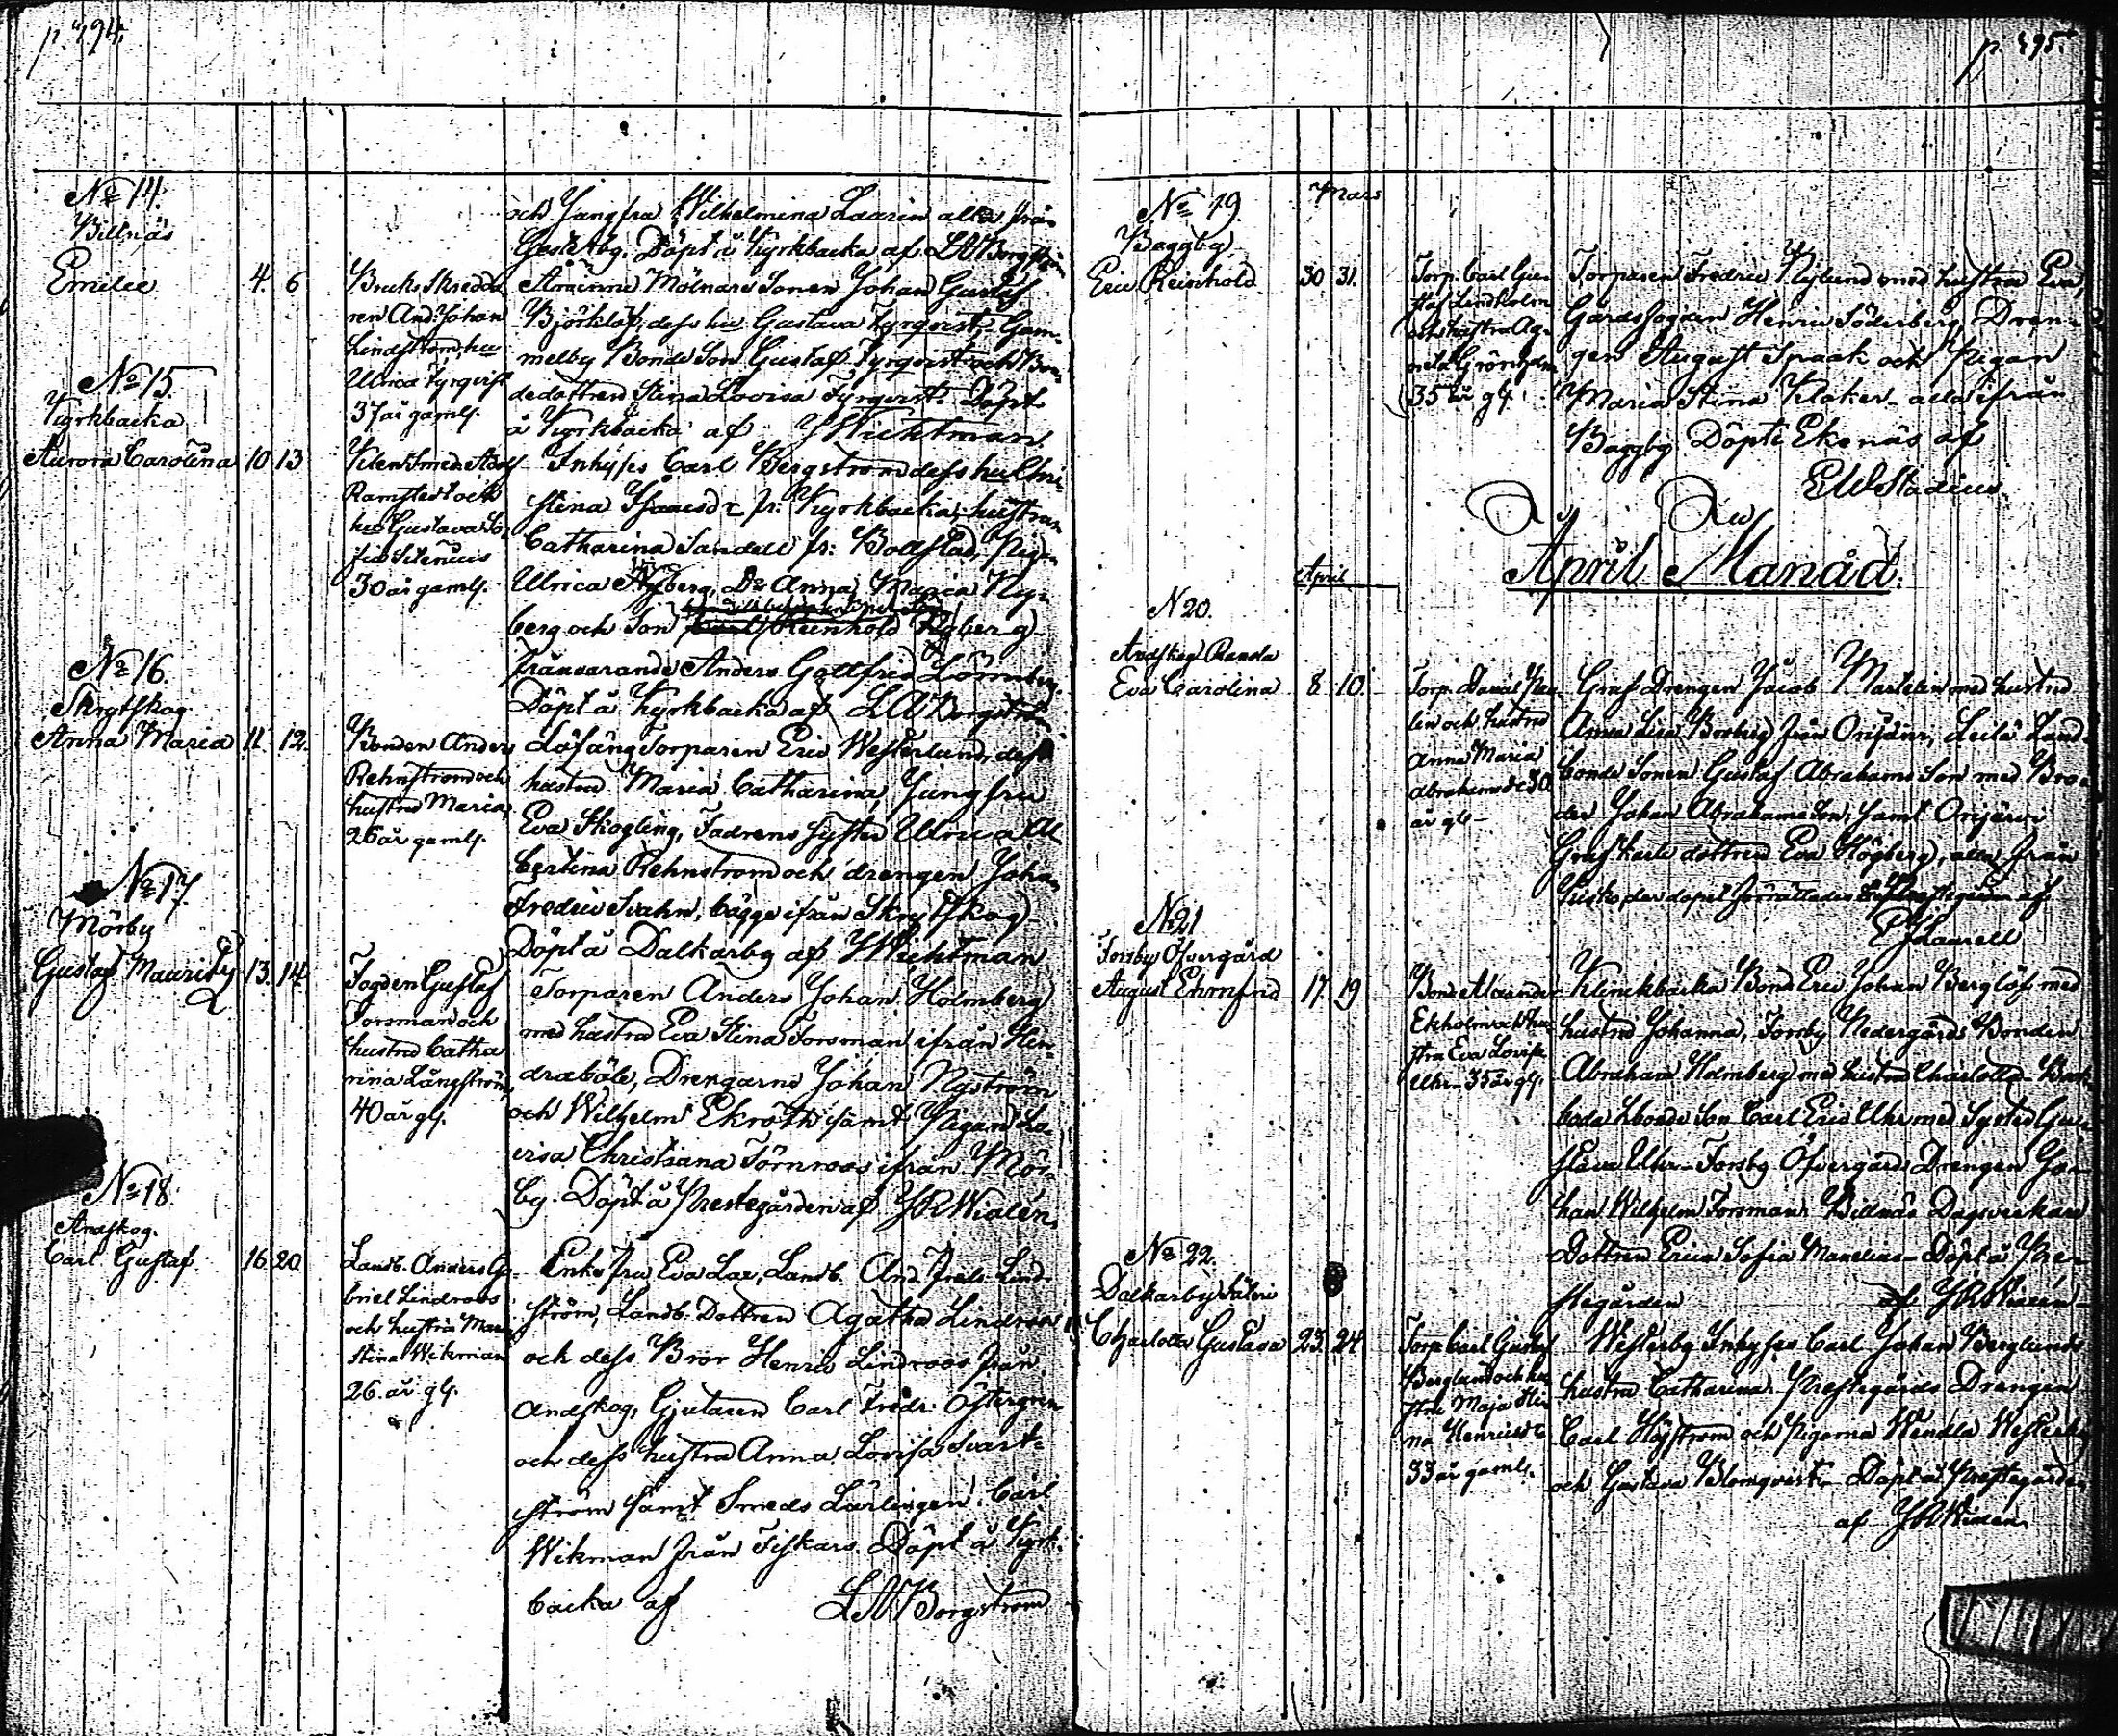 p. 494.
No 14.
Billnäs
Emilie 4. 6
Bruks Skredda
ren And: Johan
Lindström, hu
Ulrica Fyrqvist
37 år gaml.
och Jungfru Wilhelmina Laurin alla från
Döpt å Kyrkbacka af LWBorgström
Åminne Mölnare Sonen Johan Gustaf
Björklöf, dess hu Gustava Fyrqvist, Gam-
melby Bonde Son Gustaf Fyrqvist och Bon-
dedottren Stina Lovisa Fyrqvist. Döpt
å Kyrkbacka af Wichtman
No 15.
Kyrkbacka
Aurora Carolina 10 13
Ramstedt och
hu Gustava So-
fia Silenius
30 år gaml.
Inhyses Carl Bergström dess hu Ulri-
Stina Isaacsdr fr: Kyrkbacka, hustrun
Catharina Sandell fr: Bollstad, Pigan
Ulrica Nyberg, Dr Anna Maria Ny-
berg och Son Reinhold Nyberg
frånvarande Anders Gottfrid Lönnberg
Döpt å Kyrkbacka af LWBorgström
No 16.
Skrytskog
Anna Maria 11. 12.
Bonden Anders
Rehnström och
hustru Maria,
26 år gaml.
Löfäng Torparen Eric Westerlund, dess
hustru Maria Catharina, Jungfru
Eva Skogling, Fadrens Syster Ulrica Al
bertina Rehnström och drengen Johan
Fredric Svahn, bägge ifrån Skrytskog
Döpt å Dalkarby af Wichtman
No 17.
Mörby
Gustaf Mauritz 13. 14.
Fogden Gustaf
Forsman och
hustru Catha
rina Långström,
40 år gl.
Torparen Anders Johan Holmberg
med hustru Eva Stina Forsman ifrån Hin-
drabäle, Drengarne Johan Nyström
och Wilhelm Ekroth samt Pigan Lo-
visa Christiana Törnroos ifrån Mör-
by. Döpt å Prestegården af JRWidén
No 18.
Andskog.
Carl Gustaf 16. 20
Landb. Anders Ga-
briel Lindroos
och hustru Mar
Stina Wikman
26. år gl.
Enke fru Eva Lax, Landb. And. Lind-
ström, Landb. Dottren Agatha Lindroos
och dess Bror Henric Lindroos från
Andskog, Gjutaren Carl Fredr: Östergren
och dess hustru Anna Lovisa Svart-
ström samt Smeds Lärlingen Carl
Wikman från Fiskars. Döpt å Kyrk-
backa af LWBorgström
p. 495.
Mars
No 19.
Baggby
Eric Reinhold 30 31.
Torp. Carl Gus-
taf Lindholm
och hustru Ag-
35 år gl.
Torparen Fredric Nylund med hustru Eva,
Gårdsfogden Henric Söderberg, Dren-
gen August Spaak och Pigan
Maria Stina Kloker alla ifrån
Baggby Döpt i Ekenäs af
EWStadius
April Månad.
April
N 20.
Andskog Randa
Eva Carolina 8 10.
lin och hustru
Anna Maria
Abrahamsdr 30
år gl
Gruf Drengen Jacob Martelin med hustru
Anna Lisa Borberg från Orijärvi, Leilä Land-
bonde Sonen Gustaf Abrahamsson med Bro-
der Johan Abrahamsson, samt Orijärvi
Grufkarls dottren Eva Högberg, alla från
Kisko, der dopet förrättades af
Laurell
N 21
Forsby Öfvergård
August Edmund 17. 19
Bond. Alexander
Ekholm och hu
stru Eva Lovisa
Uhr 35 år gl.
Klinckbacka Bond Eric Johan Berglöf med
hustru Johanna, Forsby Nedergårds Bonden
Abraham Holmberg med hustru Charlotta
boda Lbonde Son Carl Eric Uhr med Syster Gu-
stava Uhr Forsby Öfvergårds Drengen Jo-
han Wilhelm Forsman, Billnäs Dagsverkare
Dottren Erica Sofia Manelius Döpt å Pre-
stegården af JRWidén
No 22.
Dalkarby Säteri
Charlotta Gustava 23. 24
Torp. Carl Gustaf
Berglund och hu
stru Maja Sti
na Henricsdr
33 år gaml.
Westerby Inhyses Carl Johan Berglunds
hustru Catharina, Prestegårds Drengen
Carl Höjström och Pigorna Wendla Westerby
och Gustava Blomqvist. Döpt å Prestegården
af JRWidén